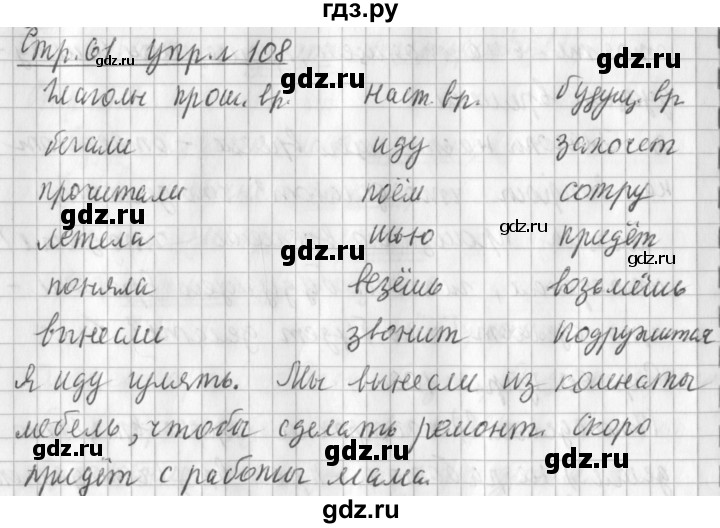 гдз.ру
Стр. 61 упр.л 108
Глаголы прош. вр. наст. вр. будущ. вр
бегали иду захочет
прочитали поём сотру
летела шью придёт
поняла везёшь возьмёшь
вынесли звонит подружится
Я иду гулять. Мы вынесли из комнаты
мебель, чтобы сделать ремонт. Скоро
придёт с работы мама.
gdz.ru
gdz.ru
gdz.ru
gdz.ru
gdz.ru
gdz.ru
gdz.ru
gdz.ru
gdz.ru
gdz.ru
gdz.ru
gdz.ru